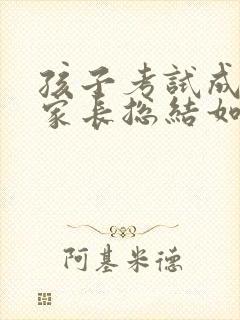 孩子考試成
家長總結如
阿基米德